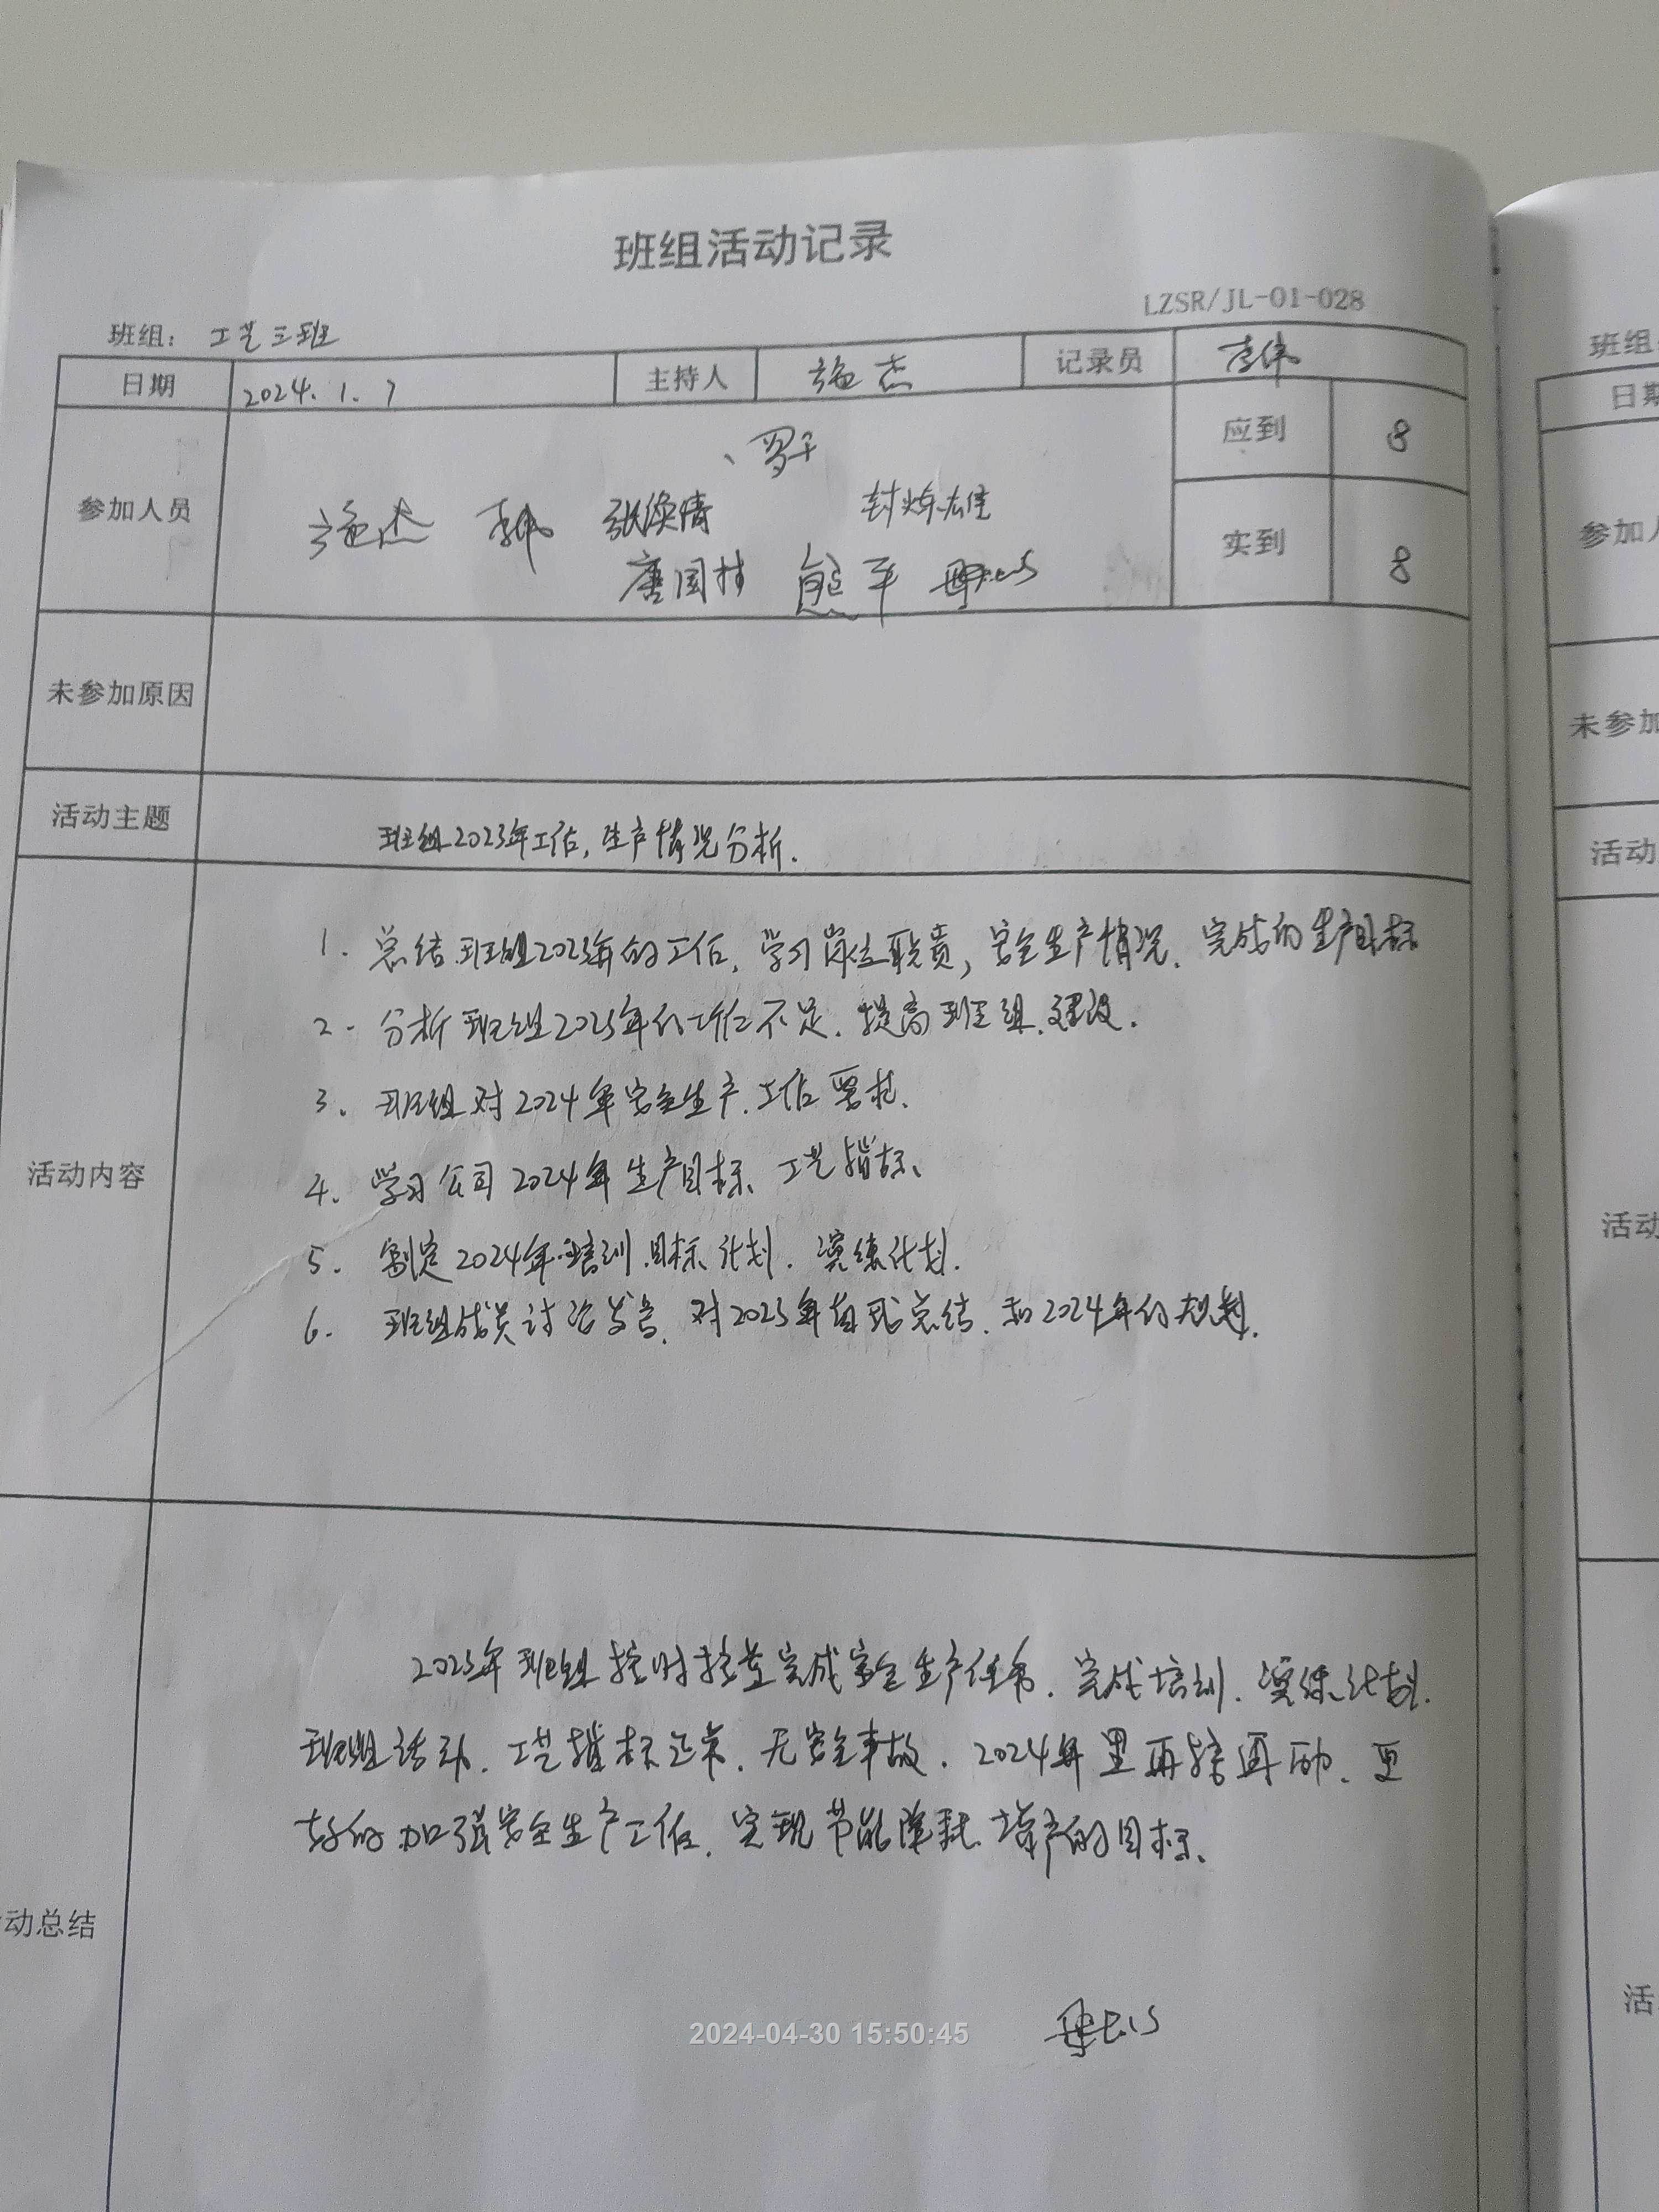 班组活动记录
LZSR/JL-01-028
班组： 工艺三班
日期 2024.1.7 主持人 施杰 记录员 李伟
应到 8
罗千
参加人员 施杰 李伟 张焕情 封炜雄
实到 8
唐国材 熊平
未参加原因
活动主题 班组2023年工作,生产情况分析.
1. 总结班组2023年的工作,学习岗位职责,安全生产情况、完成的生产目标
2. 分析班组2023年的工作不足.提高班组建设.
3. 班组对2024年安全生产.工作要求.
活动内容
4. 学习公司2024年生产目标、工艺指标、
5. 制定2024年培训目标计划.演练计划.
6. 班组成员讨论发言.对2023年自我总结.和2024年的规划.
2023年班组按时按量完成安全生产任务.完成培训.演练计划.
班组活动.工艺指标正常.无安全事故.2024年里再接再励.更
好的加强安全生产工作.实现节能降耗增产的目标、
动总结
2024-04-30 15:50:45
班组
日期
参加人
未参加
活动
活动
活